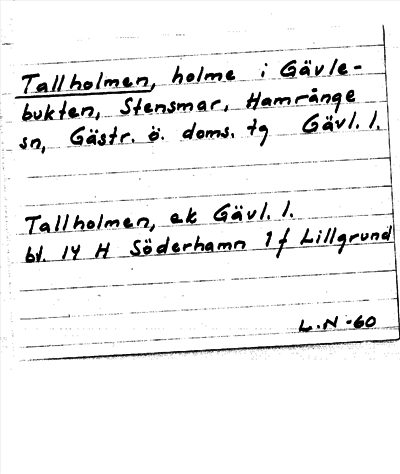 Tallholmen, holme i Gävle-
bukten, Stensmar, Hamrånge
sn, Gästr. ö. doms. tg Gävl. l.
Tallholmen, ek Gävl. l.
bl. 14 H Söderhamn 1 f Lillgrund
L.N -60